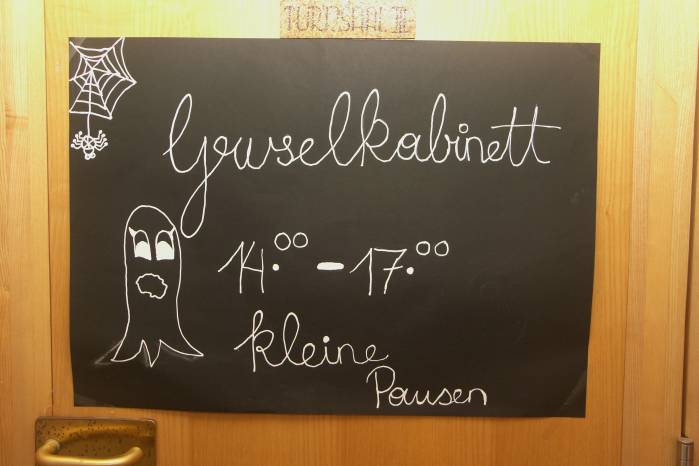 TURNSAAL II
Gruselkabinett
14.00 – 17.00
kleine
Pausen